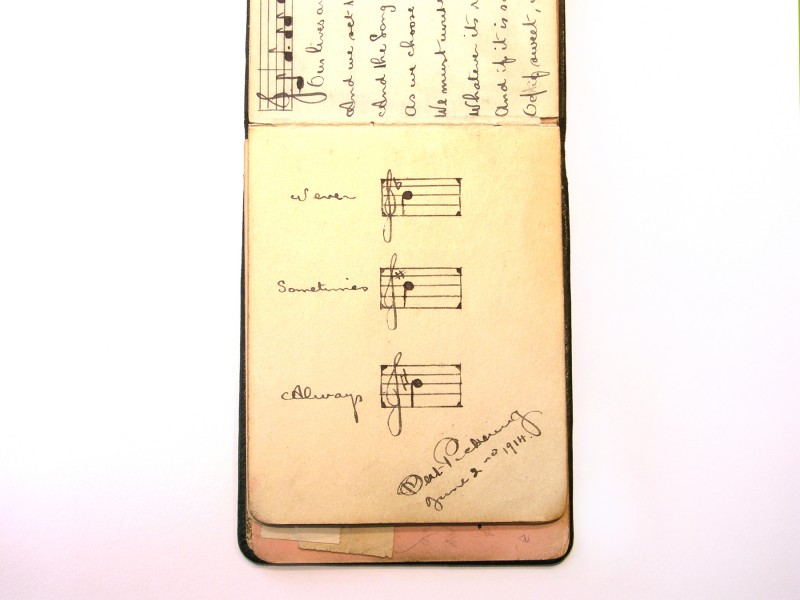 Our lives a
And we set
And the Song
As we choose
We must
Whatever its
And if it is
Or if sweet,
Never
Sometimes
Always
Bert Pickering
June 2nd 1914.